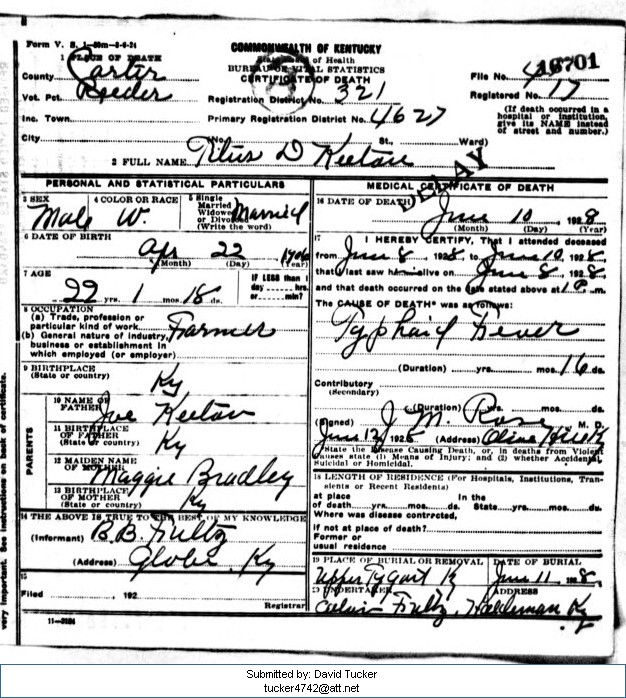 Form V. S. 1-50m-8-6-24
COMMONWEALTH OF KENTUCKY
State Board of Health
BUREAU OF VITAL STATISTICS
CERTIFICATE OF DEATH
1 PLACE OF DEATH
County Carter
Vot. Pct. Reeder
Inc. Town
City
Registration District No. 321
Primary Registration District No. 4627
(No. St., Ward)
File No. 16701
Registered No. 17
(If death occurred in a
hospital or institution,
give its NAME instead
of street and number.)
2 FULL NAME Titus D Keeton
DELAY
PERSONAL AND STATISTICAL PARTICULARS
3 SEX
Male
4 COLOR OR RACE
W.
5 Single
Married
Widowed
or Divorced
(Write the word)
Married
6 DATE OF BIRTH
Apr 22 1906
(Month) (Day) (Year)
7 AGE
22 yrs. 1 mos. 18 ds.
IF LESS than 1
day hrs.
or min?
8 OCCUPATION
(a) Trade, profession or
particular kind of work Farmer
(b) General nature of industry,
business or establishment in
which employed (or employer)
9 BIRTHPLACE
(State or country)
Ky
PARENTS
10 NAME OF
FATHER
Joe Keeton
11 BIRTHPLACE
OF FATHER
(State or country)
Ky
12 MAIDEN NAME
OF MOTHER
Maggie Bradley
13 BIRTHPLACE
OF MOTHER
(State or country)
Ky
14 THE ABOVE IS TRUE TO THE BEST OF MY KNOWLEDGE
(Informant) B.B. Fultz
(Address) Globe, Ky
15
Filed , 192
Registrar
11-3184
MEDICAL CERTIFICATE OF DEATH
16 DATE OF DEATH
June 10, 1928
(Month) (Day) (Year)
17
I HEREBY CERTIFY, That I attended deceased
from June 8, 1928, to June 10, 1928,
that I last saw him alive on June 8, 1928,
and that death occurred on the date stated above at 1 P. m.
The CAUSE OF DEATH* was as follows:
Typhoid Fever
(Duration) yrs. mos. 16 ds.
Contributory
(Secondary)
(Duration) yrs. mos. ds.
(Signed) J. M. Rose M. D.
June 12, 1928 (Address) Olive Hill Ky
*State the Disease Causing Death, or, in deaths from Violent
Causes state (1) Means of Injury; and (2) whether Accidental,
Suicidal or Homicidal.
18 LENGTH OF RESIDENCE (For Hospitals, Institutions, Tran-
sients or Recent Residents)
at place In the
of death yrs. mos. ds. State yrs. mos. ds.
Where was disease contracted,
if not at place of death?
Former or
usual residence
19 PLACE OF BURIAL OR REMOVAL
Upper Tygart Ky
DATE OF BURIAL
June 11, 1928
20 UNDERTAKER
Calvin Fultz
ADDRESS
Haldeman Ky
very important. See instructions on back of certificate.
Submitted by: David Tucker
tucker4742@att.net